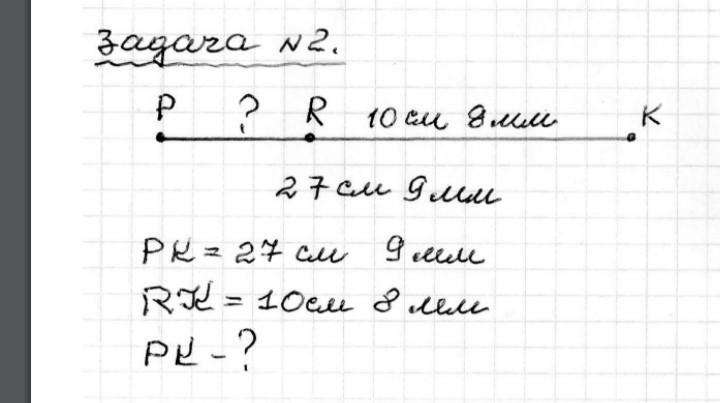 Задача №2.
P ? R 10 см 8 мм K
27 см 9 мм
PK = 27 см 9 мм
RK = 10 см 8 мм
PK - ?